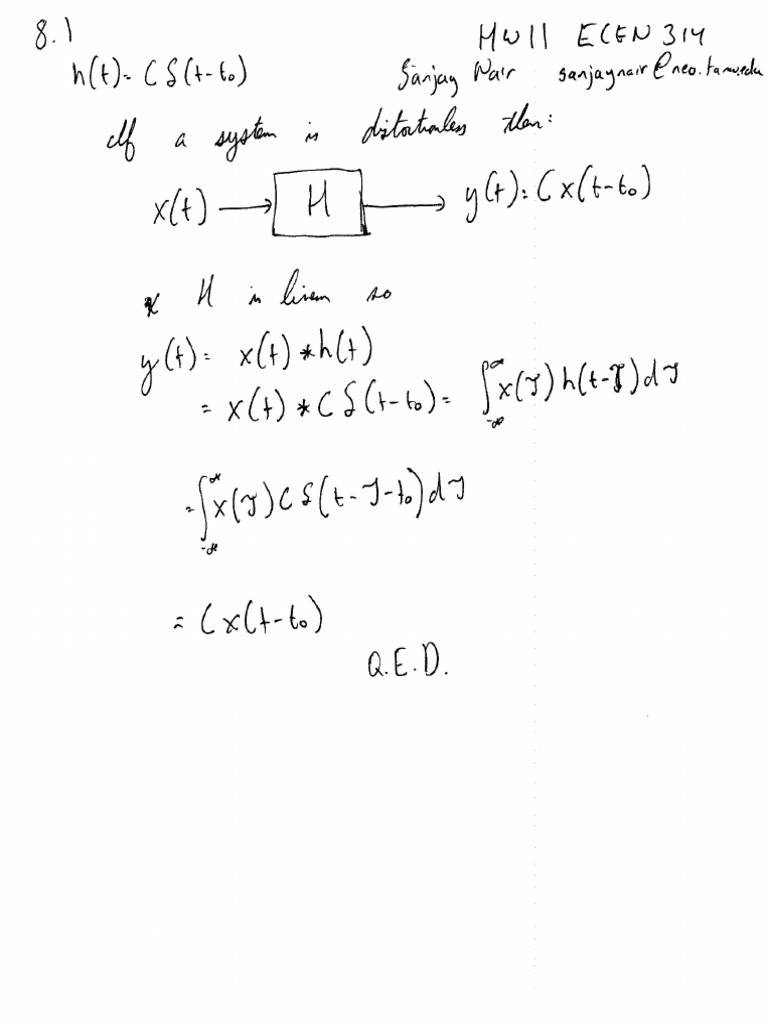 8.1
HW11 ECEN 314
h(t)= Cδ(t-t₀)
Sanjay Nair sanjaynair@neo.tamu.edu
If a system is distortionless then:
x(t) → H → y(t)= Cx(t-t₀)
* H is linear so
y(t)= x(t)*h(t)
= x(t)*Cδ(t-t₀)= ∫_{-∞}^{∞} x(τ)h(t-τ)dτ
=∫_{-∞}^{∞} x(τ)Cδ(t-τ-t₀)dτ
= Cx(t-t₀)
Q.E.D.